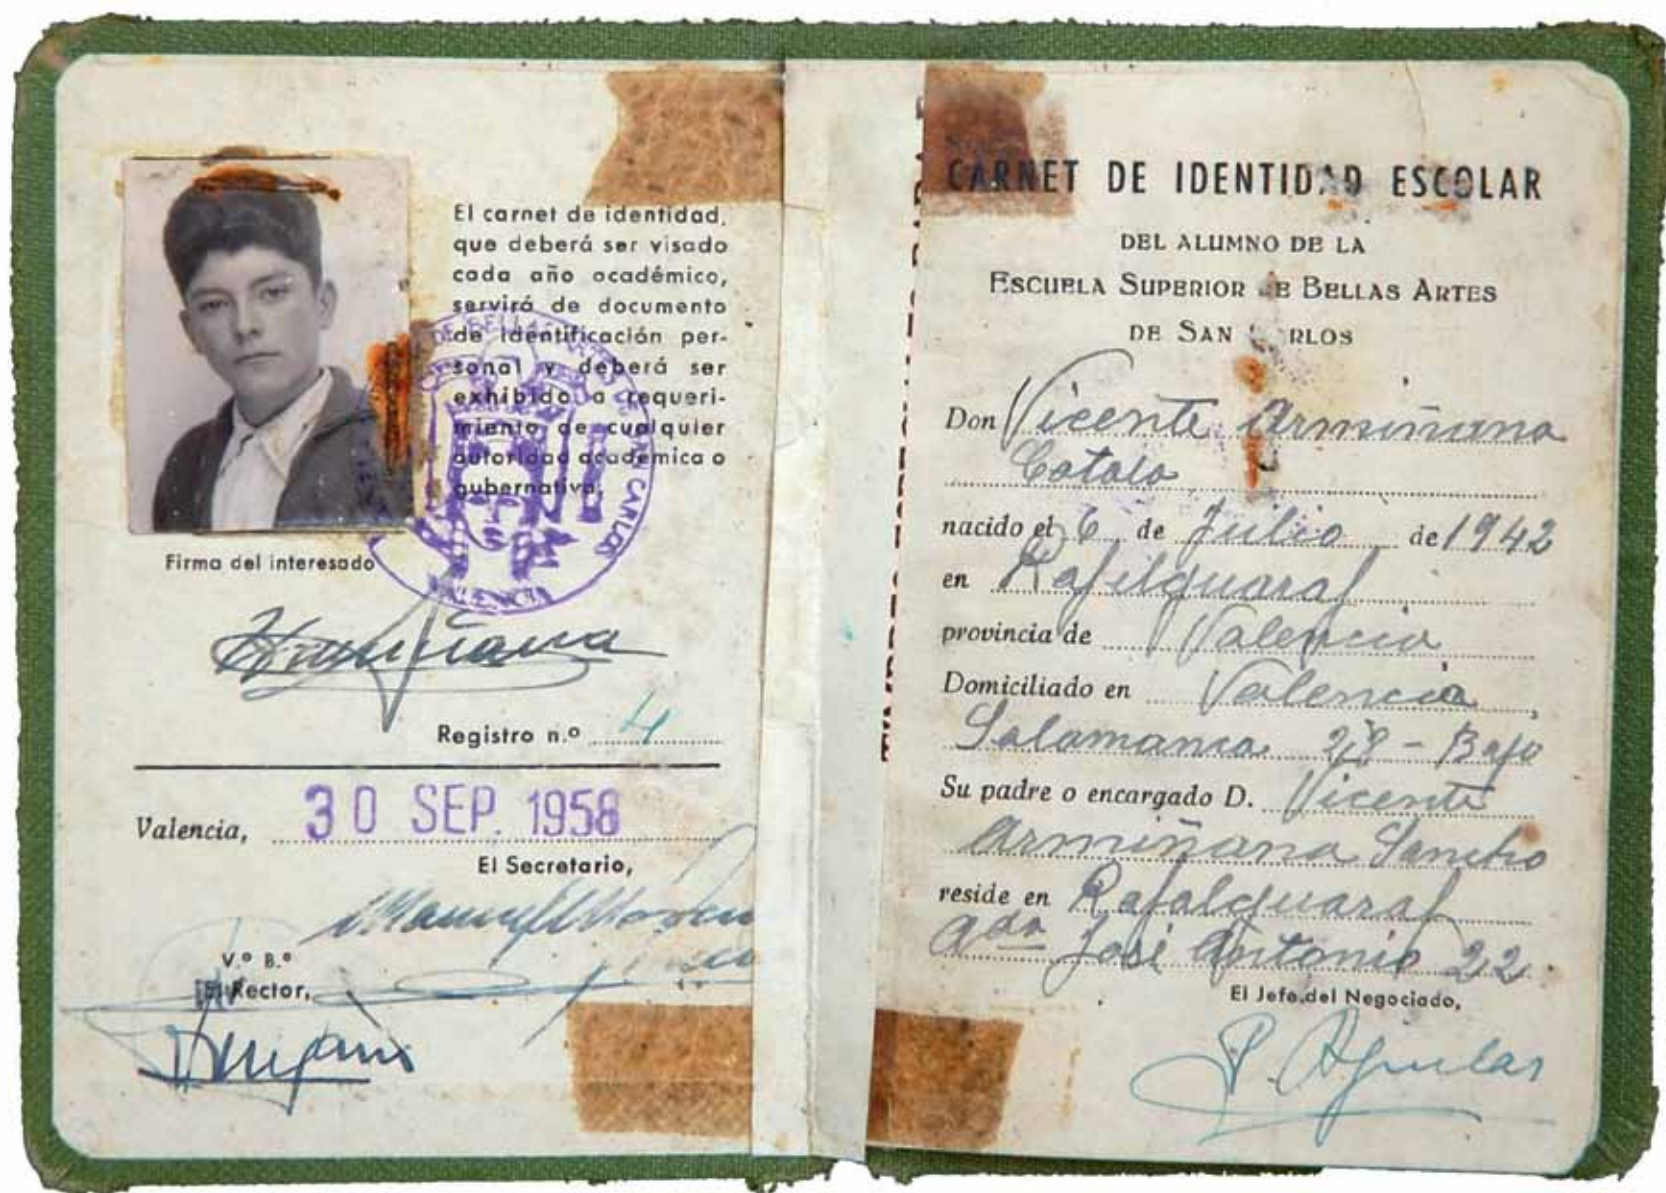 El carnet de identidad,
que deberá ser visado
cada año académico,
servirá de documento
de identificación per-
sonal y deberá ser
exhibido a requeri-
miento de cualquier
autoridad académica o
gubernativa.
DE BELLAS ARTES DE SAN CARLOS
VALENCIA
Firma del interesado
Armiñana
Registro n.º 4
Valencia, 30 SEP. 1958
El Secretario,
V.º B.º
El Rector,
CARNET DE IDENTIDAD ESCOLAR
DEL ALUMNO DE LA
ESCUELA SUPERIOR DE BELLAS ARTES
DE SAN CARLOS
Don Vicente Armiñana
Catalá
nacido el 6 de Julio de 1942
en Rafelguaraf
provincia de Valencia
Domiciliado en Valencia,
Salamanca 28 - Bajo
Su padre o encargado D. Vicente
Armiñana Sancho
reside en Rafalguaraf
José Antonio 22
El Jefe del Negociado,
P. Aguilar